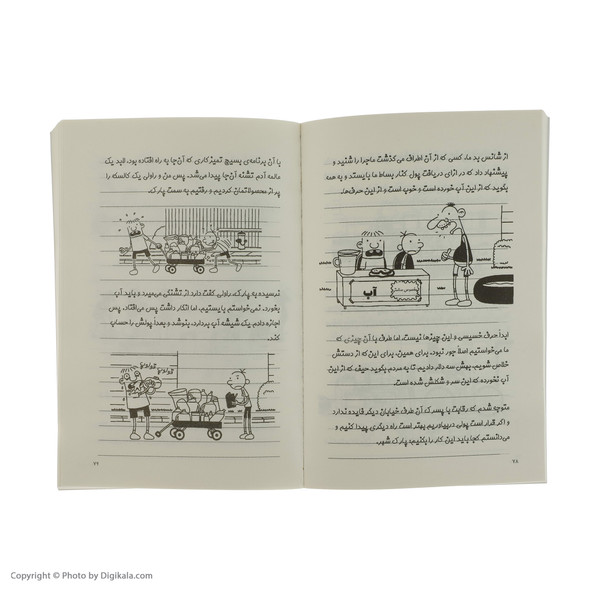 از شانس بد ما، کسی که از آن اطراف می‌گذشت ماجرا را شنید و
پیشنهاد داد که در ازای دریافت پول کنار بساط ما بایستد و به همه
بگوید که از این آب خورده است و خوب است و از این حرف‌ها.
آب
ابداً حرف خسیسی و این چیزها نیست، اما طرف با آن چیزی که
ما می‌خواستیم اصلاً جور نبود. برای همین، برای این که از دستش
خلاص شویم، بهش سه دلار دادیم تا به مردم بگوید حیف که از این
آب نخورده که این سر و شکلش شده است.
متوجه شدم که رقابت با پسر که آن طرف خیابان دیگر فایده ندارد
و اگر قرار است پولی دربیاوریم بهتر است راه دیگری پیدا کنیم و
می‌دانستم کجا باید این کار را بکنیم: پارک شهر.
۶۸
با آن برنامه‌ی بسیج تمیزکاری که آن‌جا به راه افتاده بود، لابد یک
عالمه آدم تشنه آن‌جا پیدا می‌شد. پس من و راولی یک کالسکه را
پر از محصولاتمان کردیم و رفتیم به سمت پارک.
نرسیده به پارک، راولی گفت دارد از تشنگی می‌میرد و باید آب
بخورد. نمی‌خواستم بایستیم، اما انگار داشت پس می‌افتاد. پس
اجازه دادم یک شیشه آب بردارد، بنوشد و بعداً پولش را حساب
کند.
۶۹
Copyright © Photo by Digikala.com